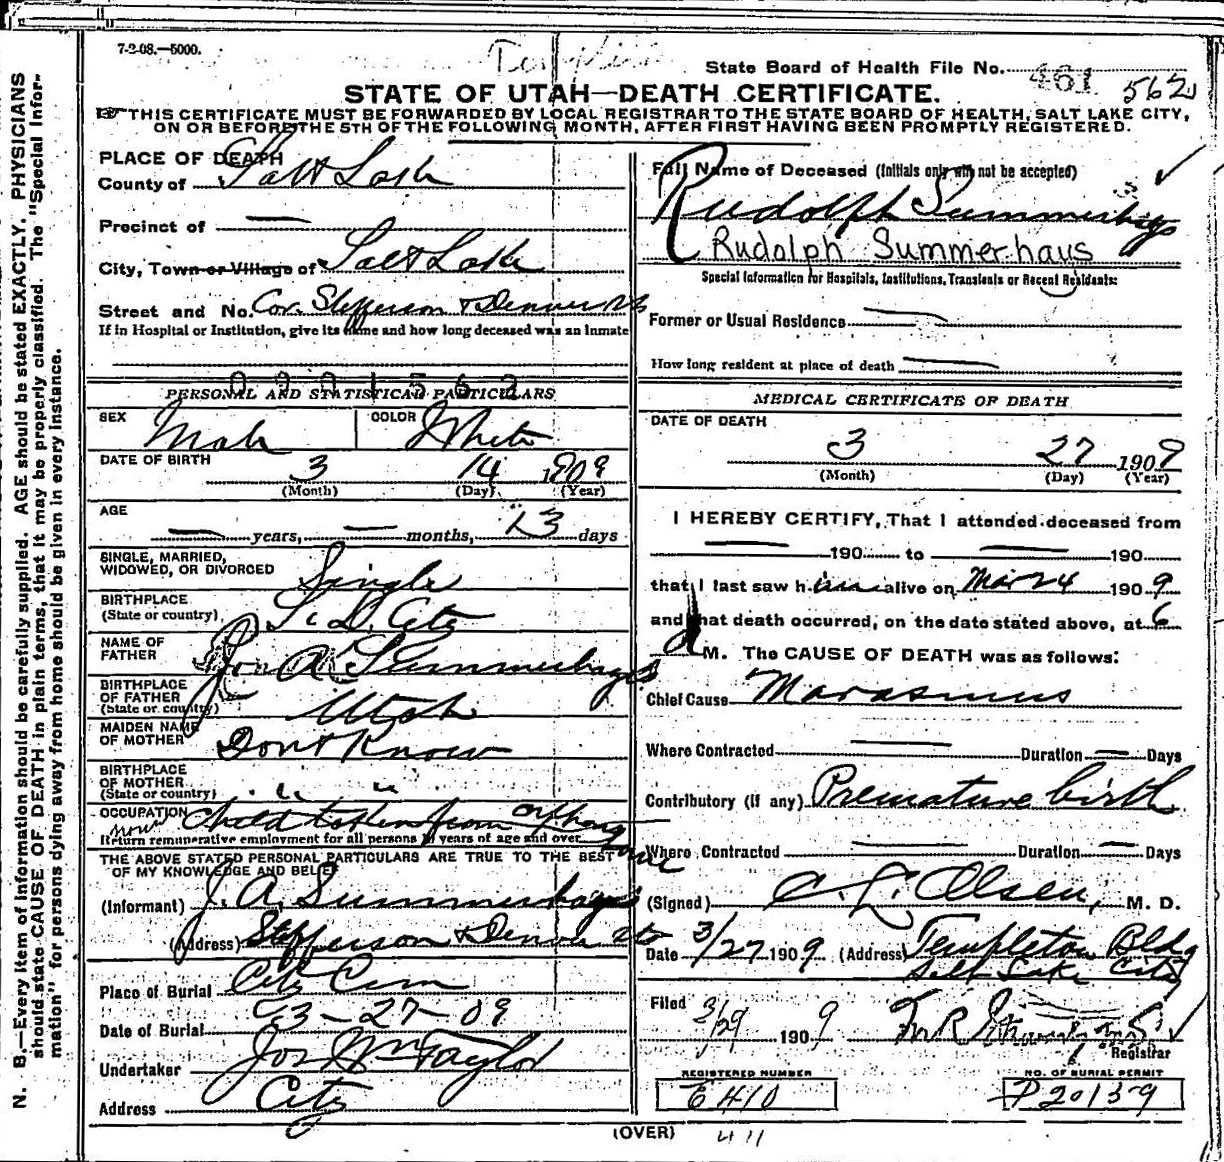 7-2-08.—5000.
State Board of Health File No. 461 562
STATE OF UTAH—DEATH CERTIFICATE.
THIS CERTIFICATE MUST BE FORWARDED BY LOCAL REGISTRAR TO THE STATE BOARD OF HEALTH, SALT LAKE CITY,
ON OR BEFORE THE 5TH OF THE FOLLOWING MONTH, AFTER FIRST HAVING BEEN PROMPTLY REGISTERED.
PLACE OF DEATH
County of Salt Lake
Precinct of —
City, Town or Village of Salt Lake
Street and No. Cor. Jefferson & Denver Sts
If in Hospital or Institution, give its name and how long deceased was an inmate
0901562
PERSONAL AND STATISTICAL PARTICULARS
SEX Male COLOR White
DATE OF BIRTH 3 14 1909
(Month) (Day) (Year)
AGE
— years, — months, 13 days
SINGLE, MARRIED,
WIDOWED, OR DIVORCED Single
BIRTHPLACE
(State or country) S. L. City
NAME OF
FATHER Jos A. Summerhays
BIRTHPLACE
OF FATHER
(State or country) Utah
MAIDEN NAME
OF MOTHER Dont Know
BIRTHPLACE
OF MOTHER
(State or country) " "
OCCUPATION Child taken from orphanage
none
Return remunerative employment for all persons 10 years of age and over
THE ABOVE STATED PERSONAL PARTICULARS ARE TRUE TO THE BEST
OF MY KNOWLEDGE AND BELIEF
(Informant) J. A. Summerhays
(Address) Jefferson & Denver Sts
Place of Burial City Cem
Date of Burial 3-27-09
Undertaker Jos Wm Taylor
Address City
Full Name of Deceased (Initials only will not be accepted)
Rudolph Summerhays
Rudolph Summerhaus
Special Information for Hospitals, Institutions, Transients or Recent Residents:
Former or Usual Residence —
How long resident at place of death —
MEDICAL CERTIFICATE OF DEATH
DATE OF DEATH
3 27 1909
(Month) (Day) (Year)
I HEREBY CERTIFY, That I attended deceased from
— 190 to — 190
that I last saw him alive on Mar 24 1909
and that death occurred, on the date stated above, at 6
a M. The CAUSE OF DEATH was as follows:
Chief Cause Marasmus
Where Contracted — Duration — Days
Contributory (if any) Premature birth
Where Contracted — Duration — Days
(Signed) C. L. Olsen, M. D.
Date 3/27 1909 (Address) Templeton Bldg
Salt Lake City
Filed
3/29 1909
Registrar
REGISTERED NUMBER NO. OF BURIAL PERMIT
E 410 P 20139
(OVER) 411
N. B.—Every item of information should be carefully supplied. AGE should be stated EXACTLY. PHYSICIANS
should state CAUSE OF DEATH in plain terms, that it may be properly classified. The "Special Infor-
mation" for persons dying away from home should be given in every instance.